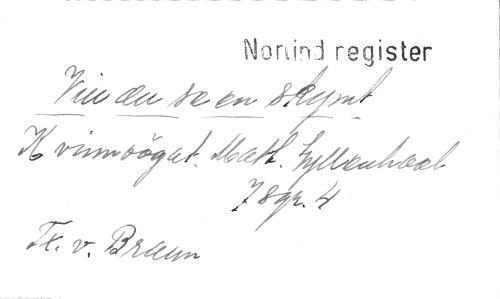 Norlind register
Vill du se en skymt
Kvinnoögat. Math. Gyllenhaal
78gr. 4
Tx. v. Braun